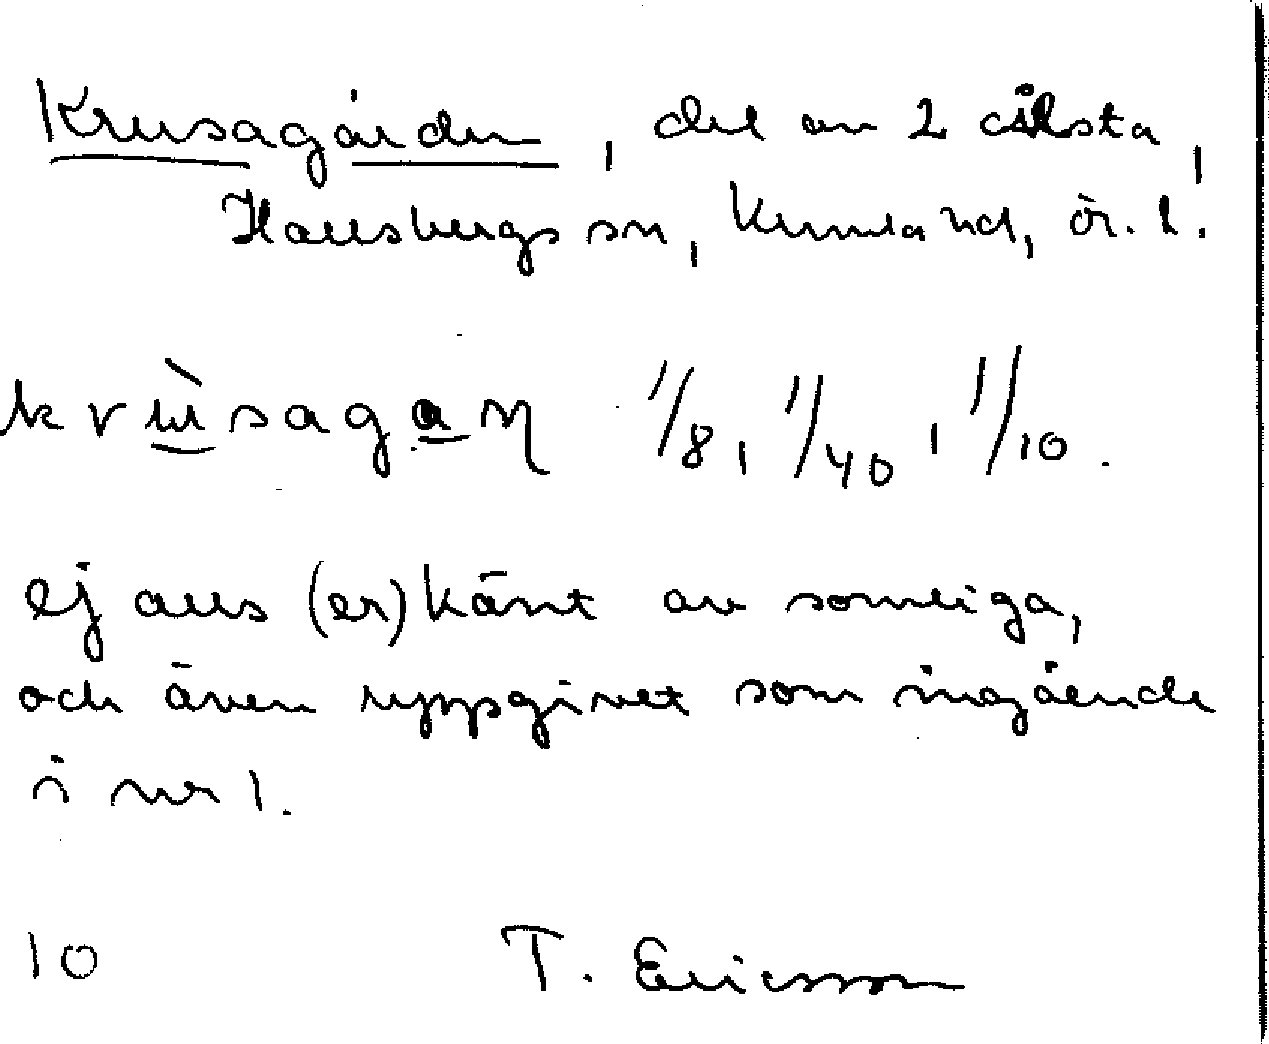 Krusagården, del av 2 Ålsta,
Hallsbergs sn, Kumla hd, ör. l.
krùsagaɳ 1/8, 1/40, 1/10.
ej alls (er)känt av somliga,
och även uppgivet som ingående
i nr 1.
10 T. Ericsson